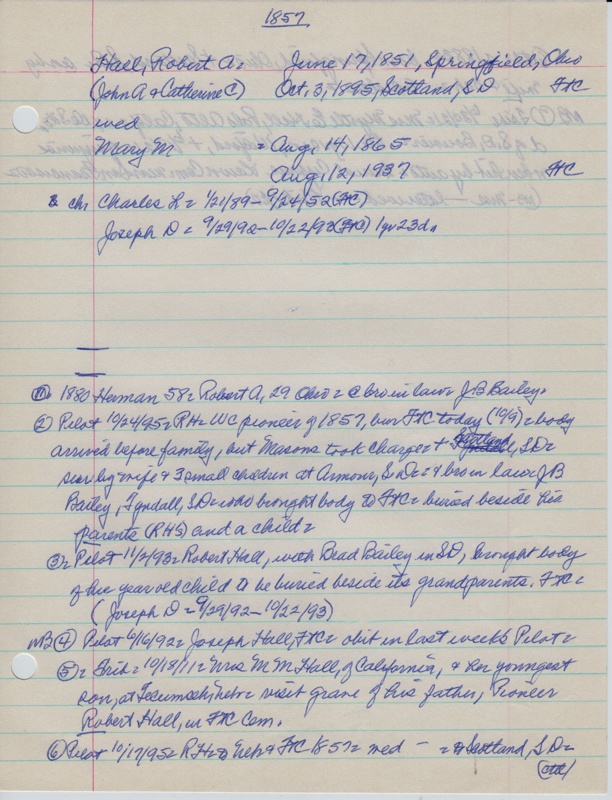 1857
Hall, Robert A = June 17, 1851, Springfield, Ohio
(John A & Catherine C) Oct, 3, 1895, Scotland, SD FTC
wed
Mary M = Aug, 14, 1865
Aug, 12, 1937 FTC
& chr Charles L = 1/21/89 - 9/24/52 (FTC)
Joseph D = 9/29/92 - 10/22/93 (FTC) 1yr 23da
① 1880 Herman 58 = Robert A, 29 Ohio = @ bro in law = J B Bailey.
② Pilot 10/24/95 = RH = WC pioneer of 1857, bur FTC today (10/9) = body
arrived before family, but Masons took charge = + Scotland, SD =
surv by wife & 3 small children at Armour, S D = + bro in law J B
Bailey, Tyndall, SD = who brought body to FTC = buried beside his
parents (RHS) and a child =
③ = Pilot 11/2/93 = Robert Hall, with Brad Bailey in SD, brought body
of his year old child to be buried beside its grandparents. FTC =
(Joseph D = 9/29/92 - 10/22/93)
MB ④ Pilot 6/16/92 = Joseph Hall, FTC = obit in last week's Pilot =
⑤ = Trib = 10/18/11 = Mrs M M Hall, of California, & her youngest
son, at Tecumseh, Nebr = visit grave of his father, Pioneer
Robert Hall, in FTC Cem.
⑥ Pilot 10/17/95 = RH = to Neb & FTC 1857 = med - = Scotland, SD =
(ctd)